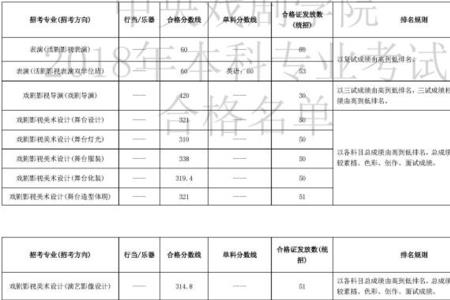 中央戏剧学院
2018年本科专业考试
合格名单
招考专业(招考方向) 行当/乐器 合格分数线 单科分数线 合格证发放数(统招) 排名规则
表演(话剧影视表演) —— 60 —— 80
以复试成绩由高到低排名。
表演(话剧影视表演双学位班) —— 60 英语:60 53
戏剧影视导演(戏剧导演) —— 420 —— 30
以三试成绩由高到低排名,三试成绩
绩由高到低排名。
戏剧影视美术设计(舞台设计) —— 321 —— 50
戏剧影视美术设计(舞台灯光) —— 310 —— 50
戏剧影视美术设计(舞台服装) —— 338 —— 50
戏剧影视美术设计(舞台化装) —— 319.4 —— 50
戏剧影视美术设计(舞台造型体现) —— 321 —— 51
以各科目总成绩由高到低排名,总成绩
较素描、色彩、创作、面试成绩。
招考专业(招考方向) 行当/乐器 合格分数线 单科分数线 合格证发放数(统招) 排名规则
戏剧影视美术设计(演艺影像设计) —— 314.8 —— 51
以各科目总成绩由高到低排名,总成
较素描、色彩、创作、面试成绩。